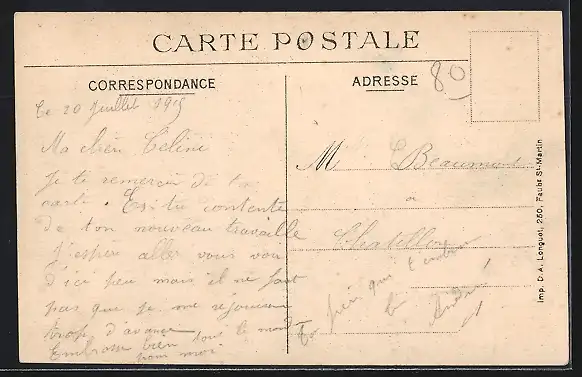 CARTE POSTALE
CORRESPONDANCE
ADRESSE
80
Le 20 Juillet 1915
Ma chère Celine
Je te remercie de ta
carte. Es-tu contente
de ton nouveau travaille
J'espère aller vous voir
d'ici peu mais il ne faut
pas que je me rejouisse
trop d'avance
Embrasse bien tout le monde
pour moi
M Beaumont
à
Chatillon
Ta qui t'embrasse
Imp. D. A. Longuet, 250, Faubg St-Martin